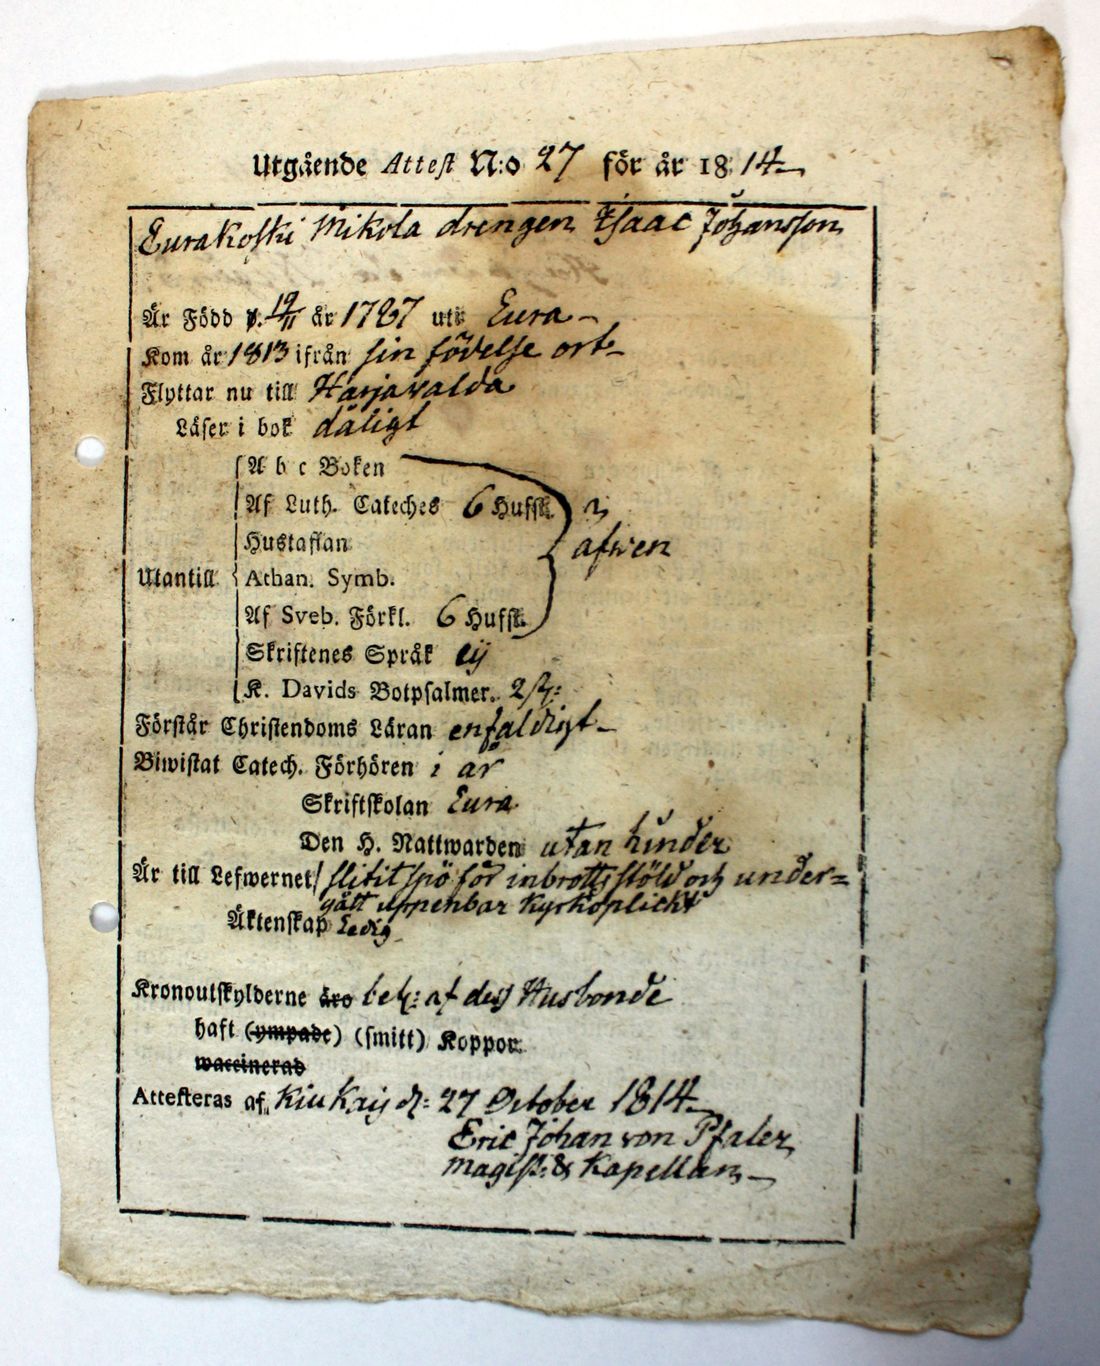 Utgående Attest N:o 27 för år 1814
Eurakoski Mikola drengen Isaac Johansson
Är Född d. 19/11 år 1787 uti Eura
Kom år 1813 ifrån sin födelse ort
Flyttar nu till Harjavalda
Läser i bok dåligt
A b c Boken
Af Luth. Cateches 6 Hufst.
Hustaflan afwen
Utantill Athan. Symb.
Af Sveb. Förkl. 6 Hufst.
Skriftenes Språk eij
K. Davids Botpsalmer. 2
Förstår Christendoms Läran enfaldigt
Biwistat Catech. Förhören i år
Skriftskolan Eura
Den H. Nattwarden utan hinder
Är till Lefwernet slitit spö för inbrotts stöld och under=
gått uppenbar kyrkoplickt
Äktenskap Ledig
Kronoutskylderne äro bet: af dess Husbonde
haft (ympade) (smitt) Koppor.
waccinerad
Attesteras af Kiukais d: 27 October 1814
Eric Johan von Pfaler
magist: & Kapellan